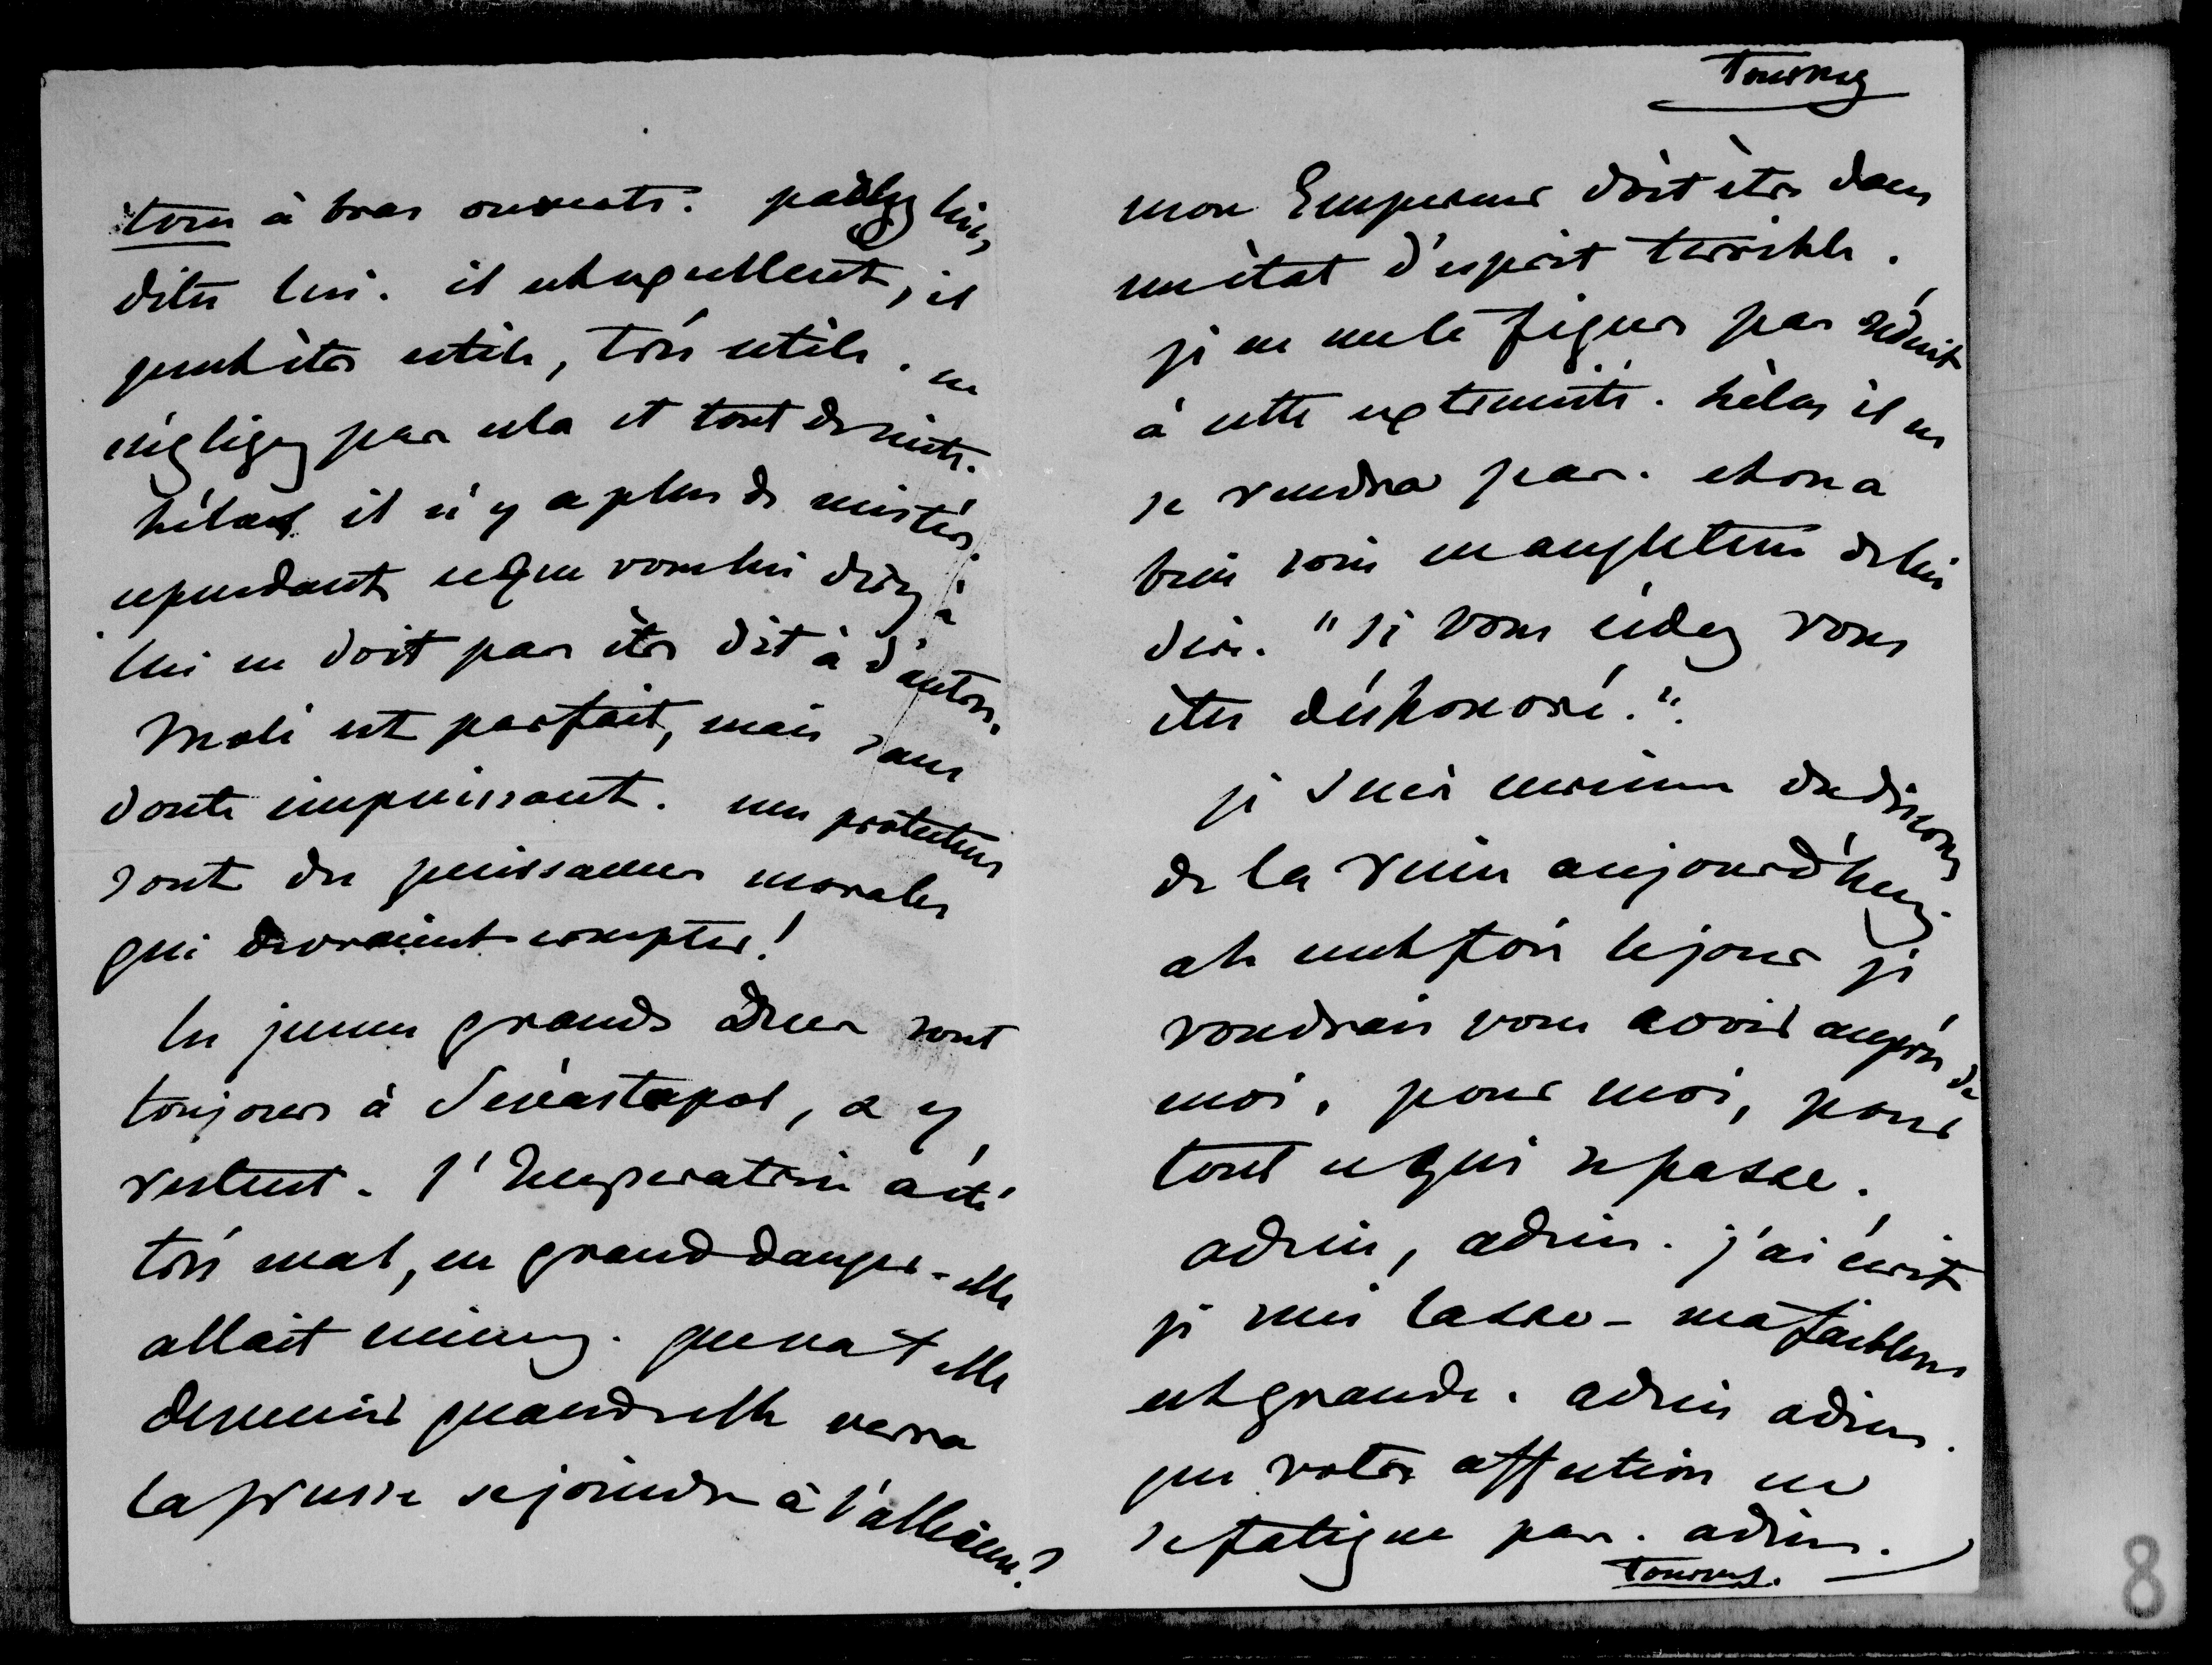 tous à bras ouverts. parlez lui,
dites lui. il est excellent, il
peut être utile, très utile. ne
négligez pas cela et tout de suite.
hélas il n'y a plus de mistère.
cependant ce que vous lui direz à
lui ne doit pas être dit à d'autres.
Molé est parfait, mais sans
doute impuissant. mes protecteurs
sont des puissances morales
qui devraient compter!
les jeunes grands ducs sont
toujours à Sevastopol, & y
restent. l'Impératrice a été
très mal, en grand danger. elle
allait mieux. que va t elle
devenir quand elle verra
la prusse se joindre à l'alliance?
Tournez
mon Empereur doit être dans
un état d'esprit terrible.
je ne me le figure pas réduit
à cette extrémité. hélas il ne
se rendra pas. et on a
bien soin en angleterre de lui
dire. "si vous cédez vous
êtes déshonoré."
je suis des discours
de la reine aujourd'hui.
ah cent fois le jour je
voudrais vous avoir auprès de
moi, pour moi, pour
tout ce qui se passe.
adieu, adieu. j'ai écrit
je suis lasse - ma faiblesse
est grande. adieu adieu.
que votre affection ne
se fatigue pas. adieu.
Tournez.
8